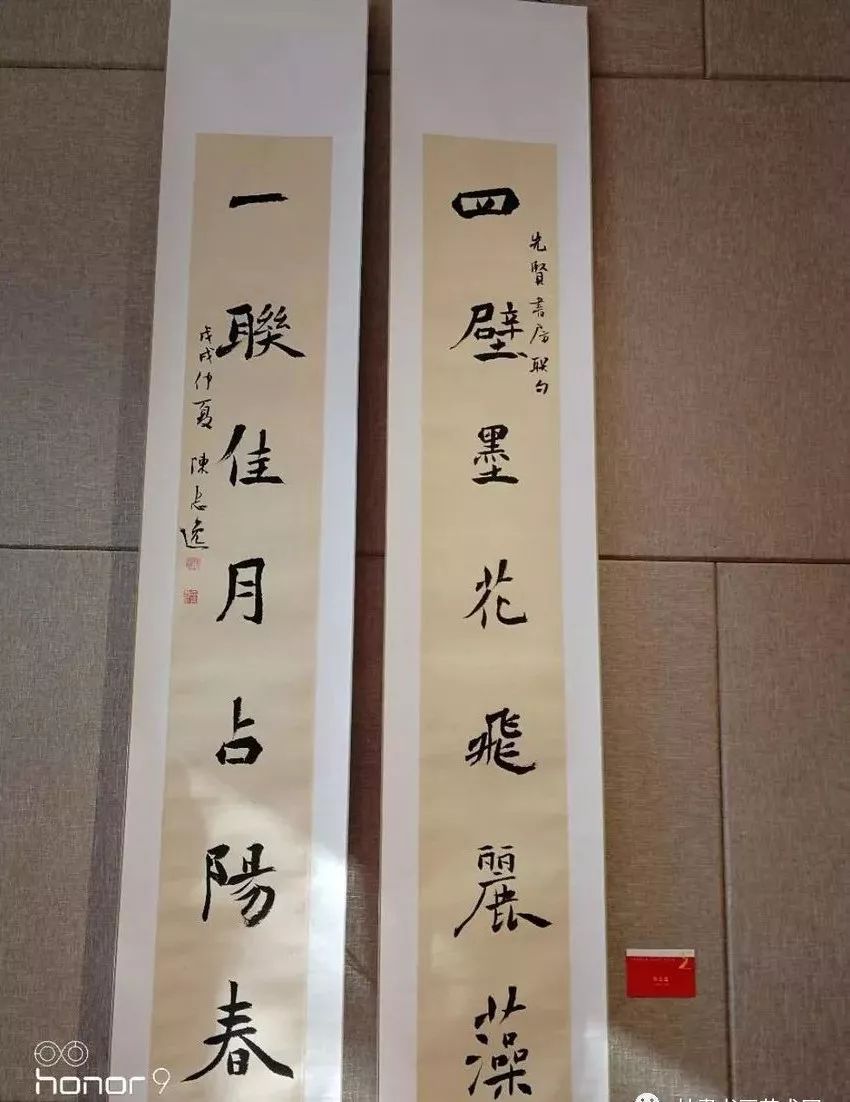 四壁墨花飛麗藻
先賢書房联句
一聯佳月占陽春
戊戌仲夏 陳志逸
honor 9